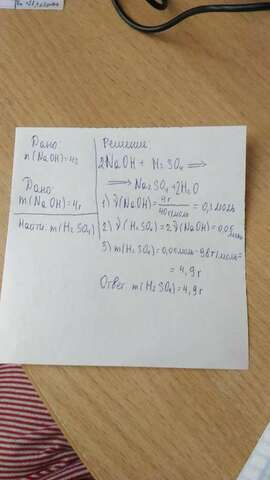 Дано:
n(NaOH)=4г
Дано:
m(NaOH)=4г
Найти: m(H2SO4)
Решение
2NaOH + H2SO4 ⟹
⟹ Na2SO4+2H2O
1) ν(NaOH)=4г/40г/моль=0,1моль
2) ν(H2SO4)=2ν(NaOH)=0,05 моль
3) m(H2SO4)=0,05моль·98г/моль=
=4,9г
Ответ: m(H2SO4)=4,9г